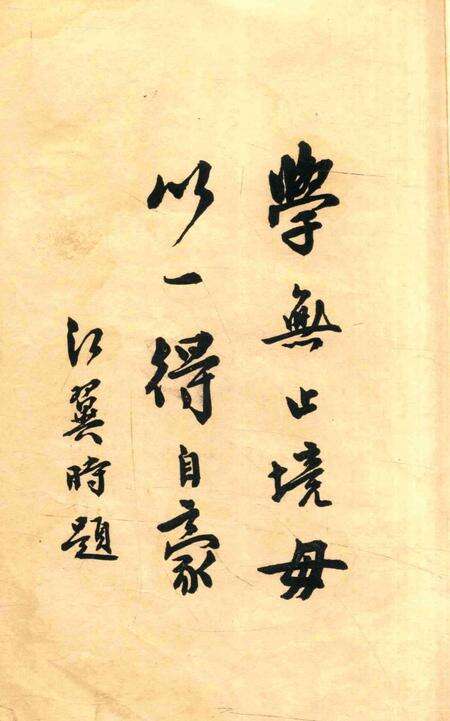 學無止境毋
以一得自豪
江翼時題